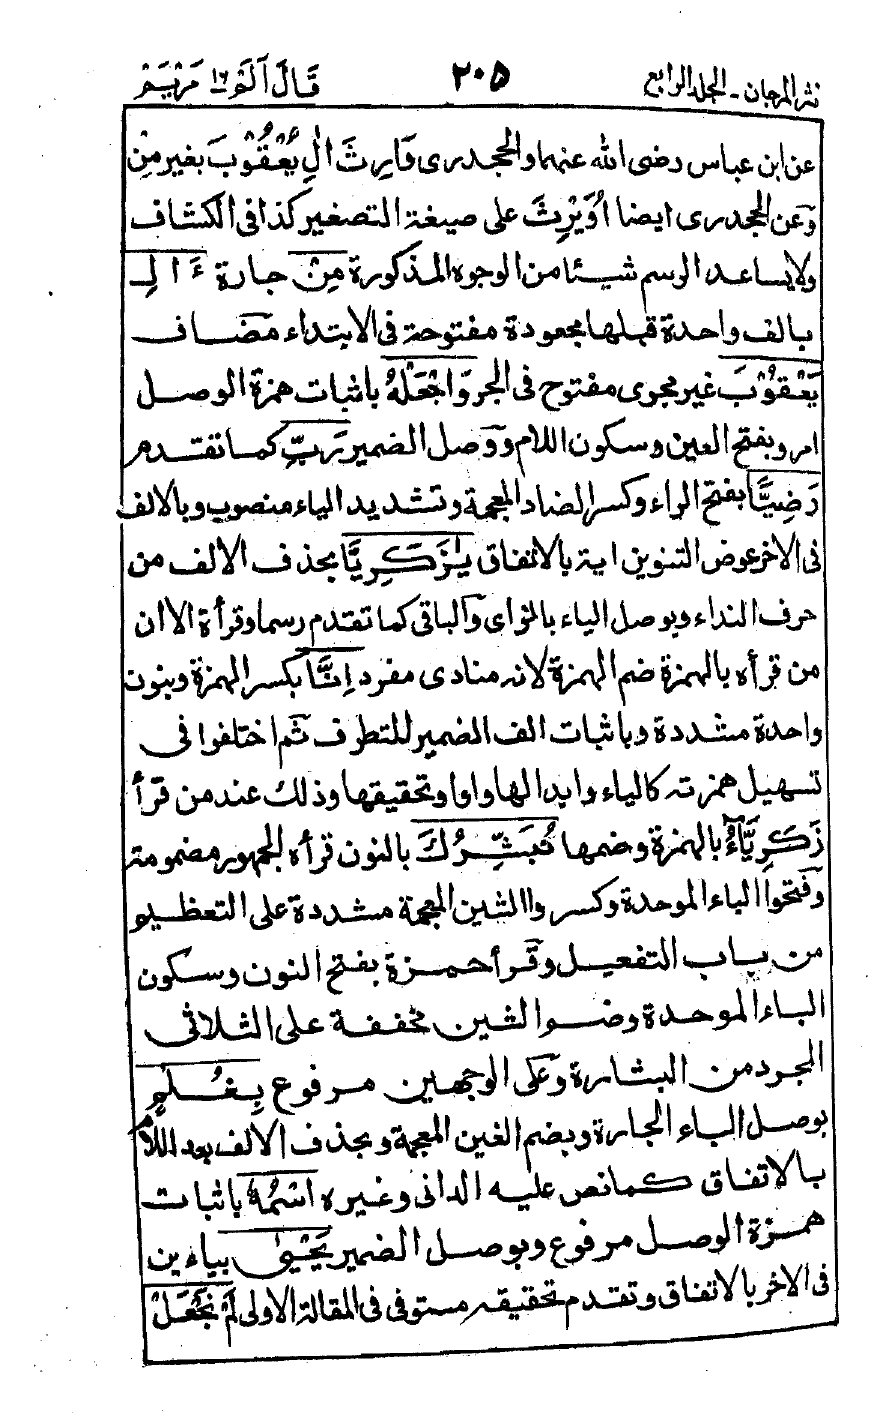 نثر المرجان - الجلد الرابع ٢٠٥ قَالَ اَلَمْ ١٦ مَرْيَمَ
عن ابن عباس رضى الله عنهما والجحدرى وَارِثُ اٰلِ يَعْقُوْبَ بغير مِنْ
وَعن الجحدرى ايضا اُوَيْرِثُ على صيغة التصغير كذا فى الكشاف
ولا يساعد الرسم شيئا من الوجوه المذكورة مِنْ جارة ءَ ا لِ
بالف واحدة قبلها مجعودة مفتوحة فى الابتداء مضاف
يَعْقُوْبَ غير مجرى مفتوح فى الجر وَاجْعَلْهُ باثبات همزة الوصل
امر وبفتح العين وسكون اللام وَوَصل الضمير رَبِّ كما تقدم
رَضِيًّا بفتح الراء وكسر الضاد المعجمة وتشديد الياء منصوب وبالالف
فى الاخر عوض التنوين اية بالاتفاق يٰزَكَرِيَّا بحذف الالف من
حرف النداء وبوصل الياء بالزاى وَالباقى كما تقدم رسما وقرأة الا ان
من قرأه بالهمزة ضم الهمزة لانه منادى مفرد اِنَّا بكسر الهمزة وبنون
واحدة مشددة وباثبات الف الضمير للتطرف ثم اختلفوا فى
تسهيل همزته كالياء وابدالها واوا وتحقيقها وذلك عند من قرأ
زَكَرِيَّاءُ بالهمزة وضمها نُبَشِّرُكَ بالنون قرأه الجمهور مضمومة
وَفتحوا الباء الموحدة وكسروا الشين المعجمة مشددة على التعظيم
من باب التفعيل وقرأ حمزة بفتح النون وسكون
الباء الموحدة وضموا الشين مخففة على الثلاثى
المجرد من البشارة وَعلى الوجهين مرفوع بِغُلٰمٍ
بوصل الباء الجارة وبضم الغين المعجمة وبحذف الالف بعد اللام
بالاتفاق كما نص عليه الدانى وغيره اسْمُهٗ باثبات
همزة الوصل مرفوع وبوصل الضمير يَحْيٰى بياءين
فى الاخر بالاتفاق وتقدم تحقيقه مستوفى فى المقالة الاولى لَمْ نَجْعَلْ